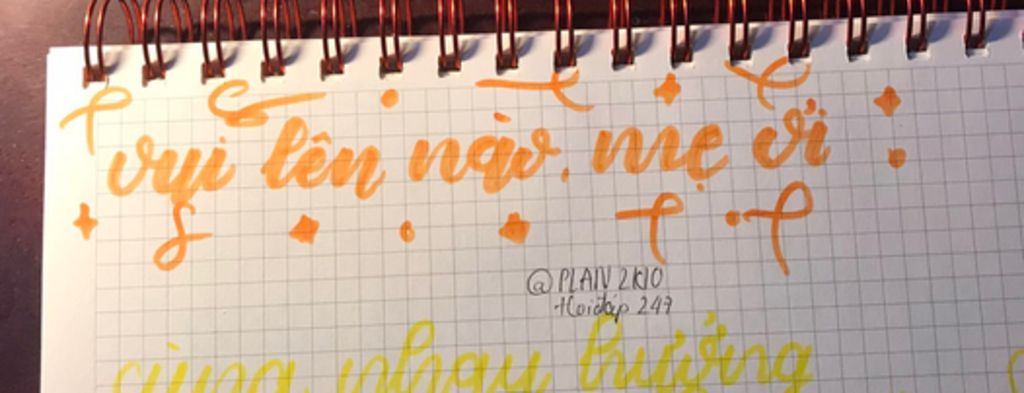 vui lên nào, mẹ ơi
@PLAIN2K10
Hoidap 247
cùng nhau hướng